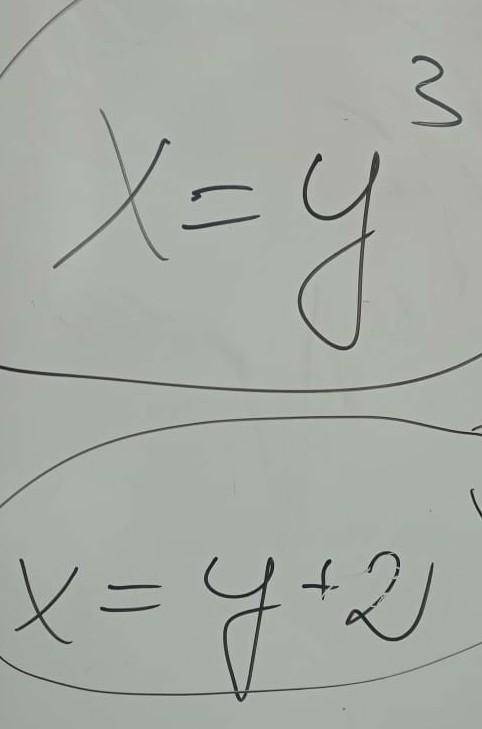 x = y³
x = y + 2